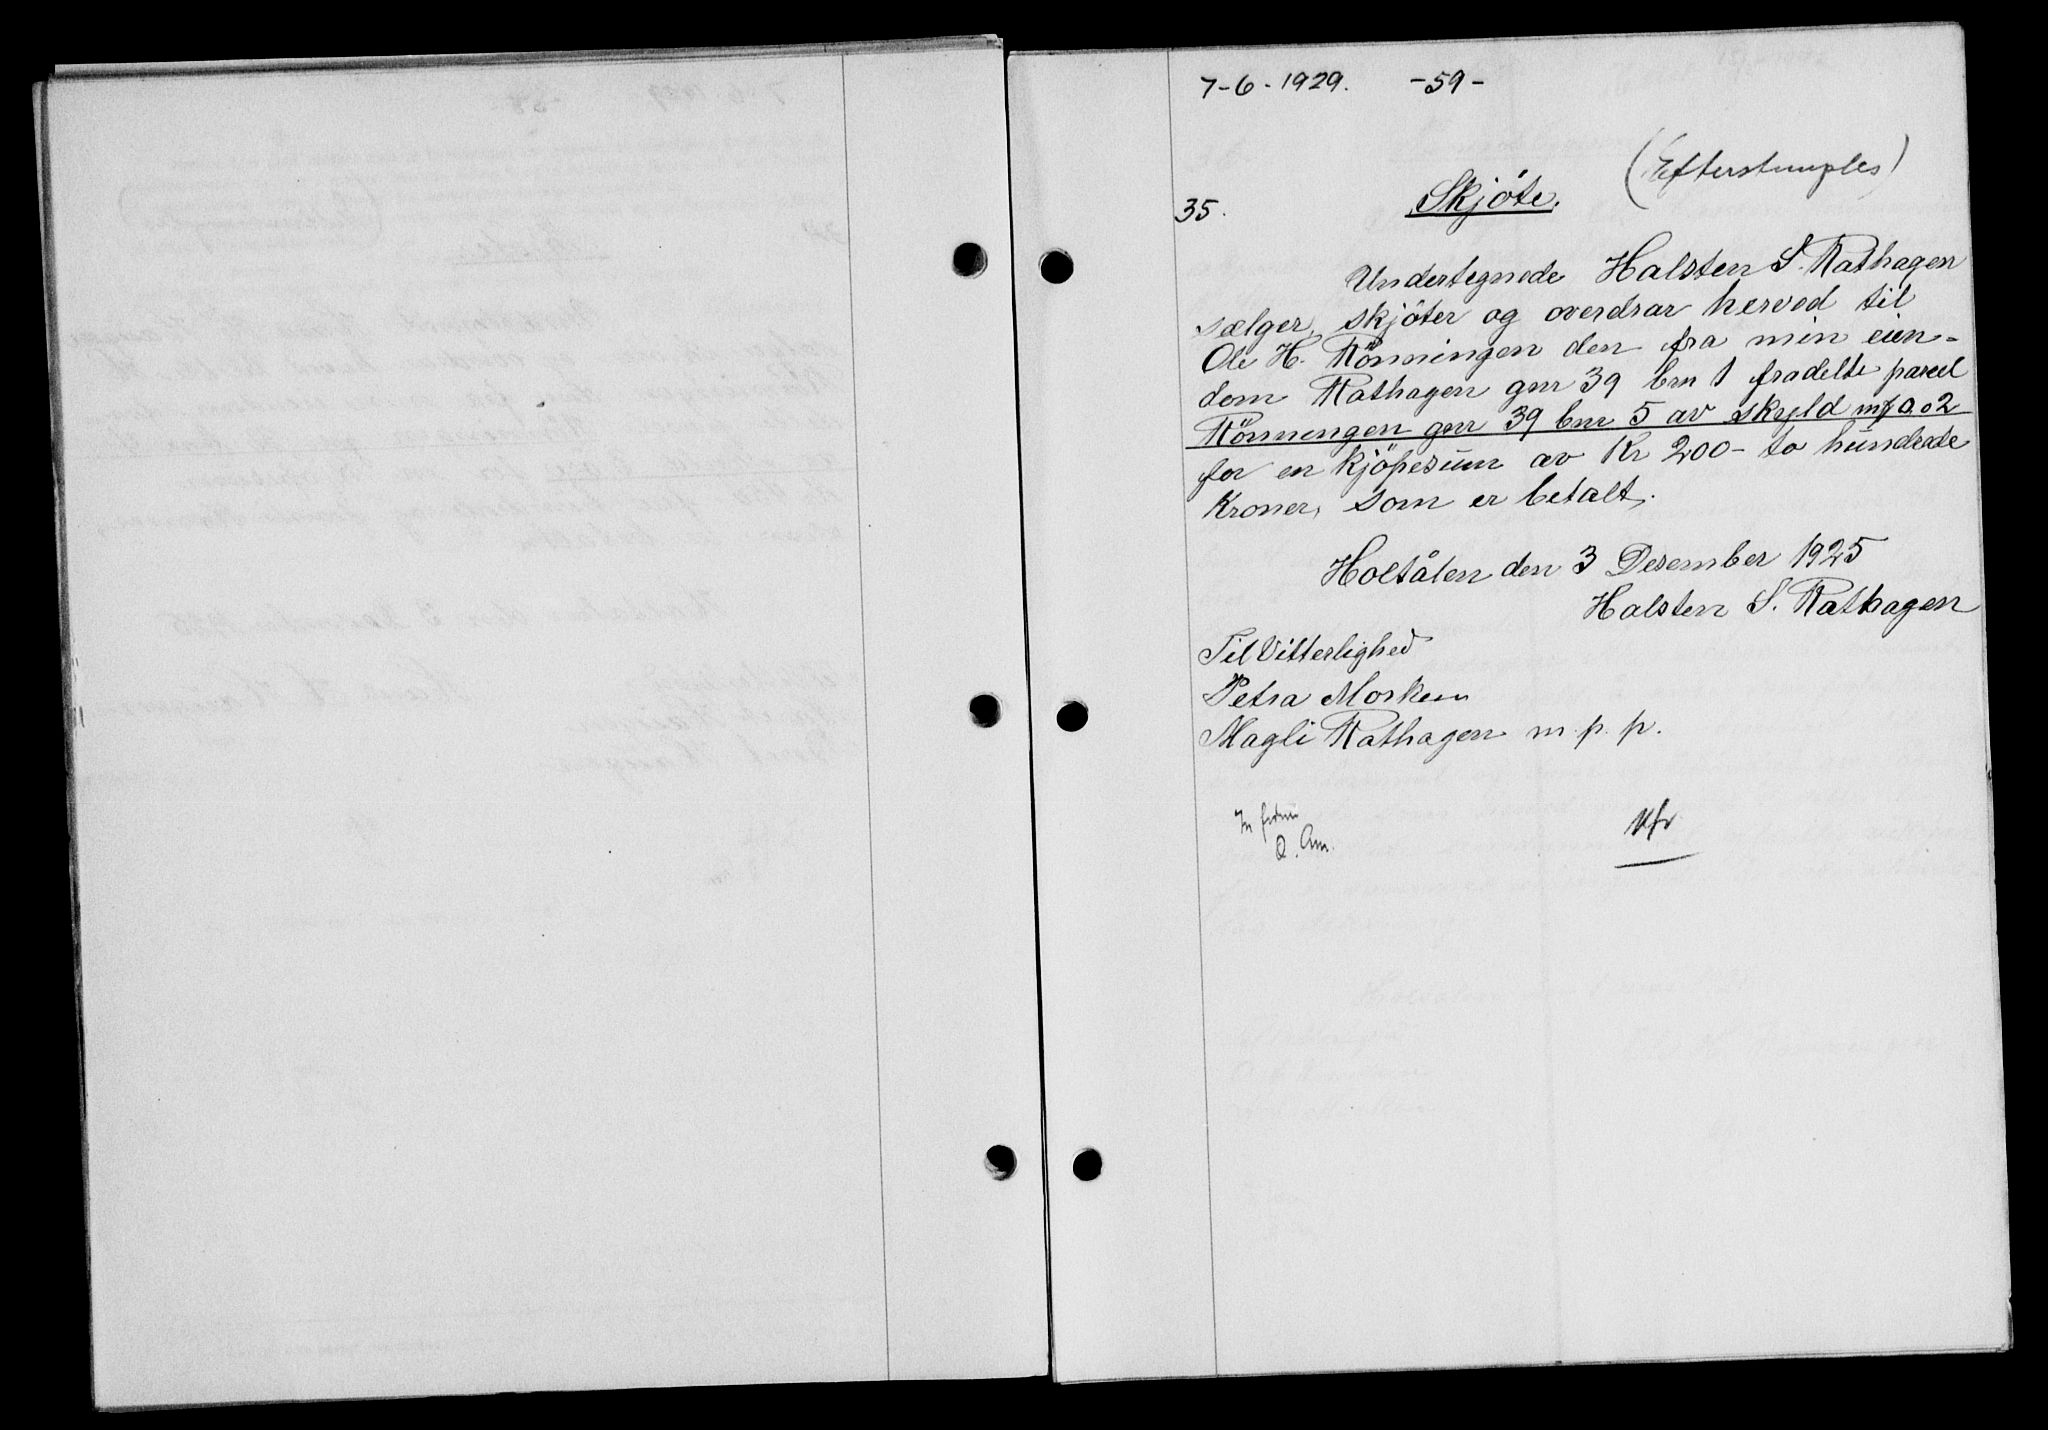 7-6-1929. -59-
(Efterstemples)
35. Skjöte.
Undertegnede Halsten S. Rathagen
sælger, skjöter og overdrar herved til
Ole H. Rönningen den fra min eien-
dom Rathagen gnr 39 bnr 1 fradelte parcel
Rönningen gnr 39 bnr 5 av skyld mk 0.02
for en kjöpesum av Kr 200- to hundrede
Kroner, som er betalt.
Holtålen den 3 Desember 1925
Halsten S. Rathagen
Til Vitterlighed
Petra Morken
Magli Rathagen m. p. p.